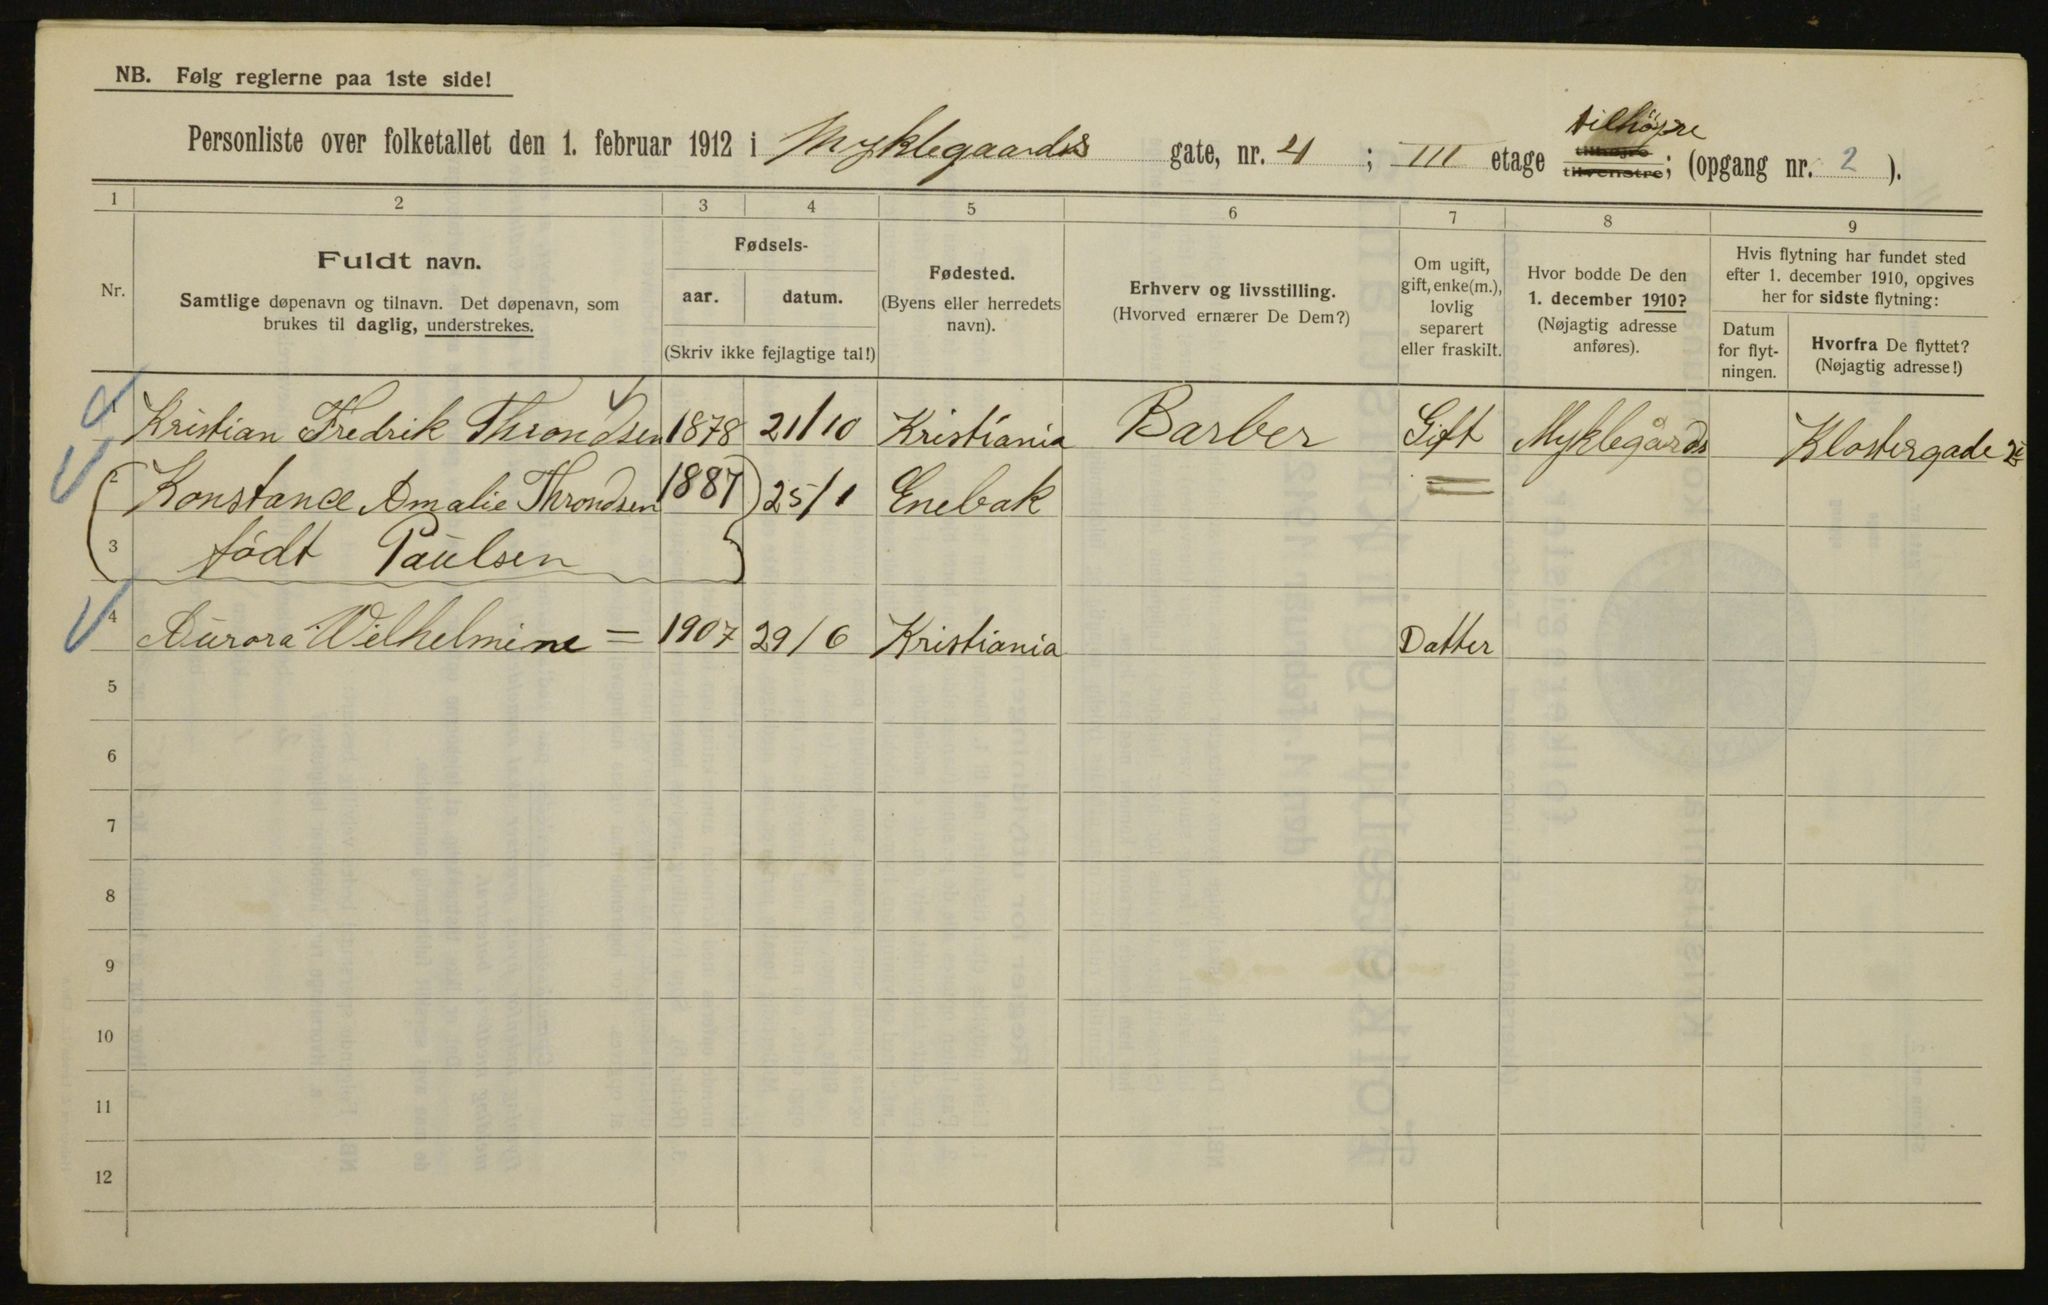 NB. Følg reglerne paa 1ste side!
Personliste over folketallet den 1. februar 1912 i Myklegaards gate, nr. 4 ; III etage tilhøjre tilhøjre tilvenstre; (opgang nr. 2 ).
1 2 3 4 5 6 7 8 9
Nr.
Fuldt navn.
Samtlige døpenavn og tilnavn. Det døpenavn, som
brukes til daglig, understrekes.
Fødsels-
aar. datum.
(Skriv ikke fejlagtige tal!)
Fødested.
(Byens eller herredets
navn).
Erhverv og livsstilling.
(Hvorved ernærer De Dem?)
Om ugift,
gift, enke(m.),
lovlig
separert
eller fraskilt.
Hvor bodde De den
1. december 1910?
(Nøjagtig adresse
anføres).
Hvis flytning har fundet sted
efter 1. december 1910, opgives
her for sidste flytning:
Datum
for flyt-
ningen.
Hvorfra De flyttet?
(Nøjagtig adresse!)
1 Kristian Fredrik Throndsen 1878 21/10 Kristiania Barber Gift Myklegårds Klostergade
2 Konstance Amalie Throndsen 1887 25/1 Enebak =
3 født Paulsen
4 Aurora Wilhelmine = 1907 29/6 Kristiania Datter
5
6
7
8
9
10
11
12